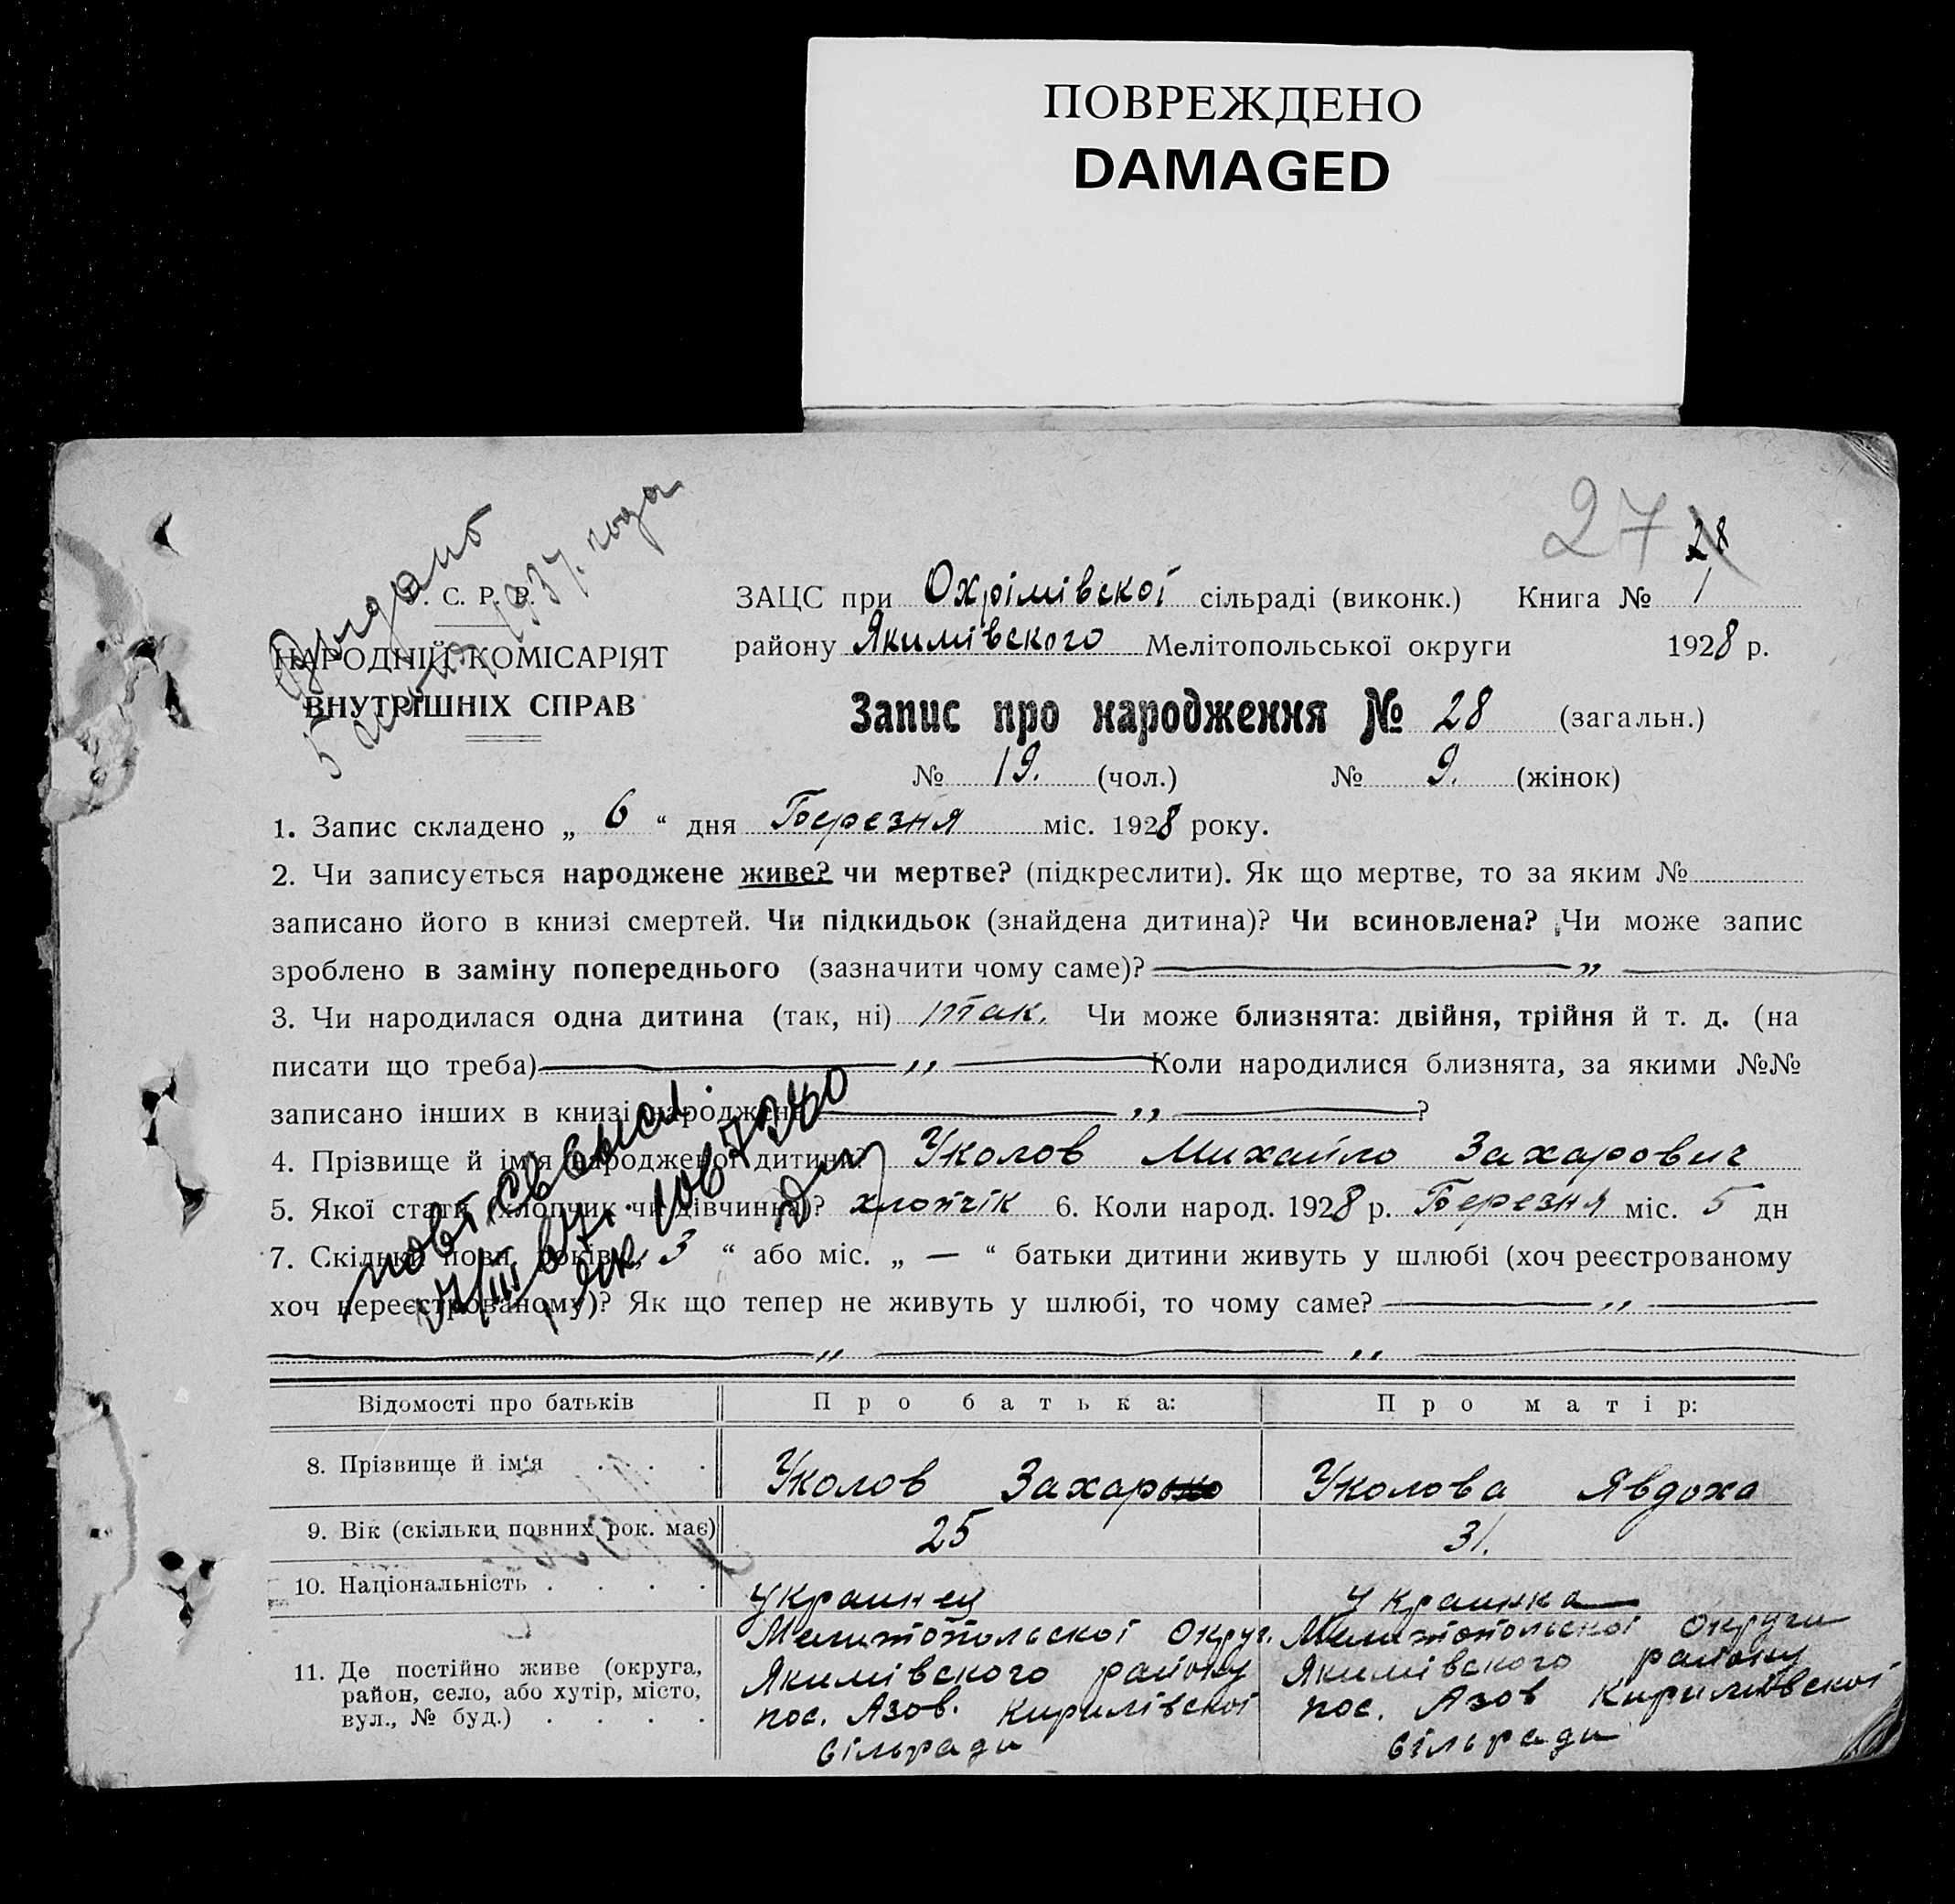 ПОВРЕЖДЕНО
DAMAGED
27 28
С. Р. Р.
НАРОДНІЙ КОМІСАРІЯТ
ВНУТРІШНІХ СПРАВ
1937. года
ЗАЦС при Охрімівскої сільраді (виконк.) Книга № 1
району Якимівского Мелітопольської округи 1928 р.
Запис про народження № 28 (загальн.)
№ 19. (чол.) № 9. (жінок)
1. Запис складено „ 6 “ дня Березня міс. 1928 року.
2. Чи записується народжене живе? чи мертве? (підкреслити). Як що мертве, то за яким №
записано його в книзі смертей. Чи підкидьок (знайдена дитина)? Чи всиновлена? Чи може запис
зроблено в заміну попереднього (зазначити чому саме)? — „ —
3. Чи народилася одна дитина (так, ні) так. Чи може близнята: двійня, трійня й т. д. (на
писати що треба) — „ — Коли народилися близнята, за якими №№
записано інших в книзі народжень — „ — ?
4. Прізвище й ім'я народженої дитини? Уколов Михайло Захарович
5. Якої статі (хлопчик чи дівчинка)? хлопчік 6. Коли народ. 1928 р. Березня міс. 5 дн
7. Скільки повн. років „ 3 “ або міс. „ — “ батьки дитини живуть у шлюбі (хоч реєстрованому
хоч нереєстрованому)? Як що тепер не живуть у шлюбі, то чому саме? — „ —
— „ — „ —
Відомості про батьків Про батька: Про матір:
8. Прізвище й ім'я . . . Уколов Захар Уколова Явдоха
9. Вік (скільки повних рок. має) 25 31.
10. Національність . . . . украинец украинка
11. Де постійно живе (округа, район, село, або хутір, місто, вул., № буд.) . . . .
Мелитопольскої Округ. Мелитопольскої Округи
Якимівского району Якимівского району
пос. Азов. Кирилівскої пос. Азов Кирилівскої
сільради сільради